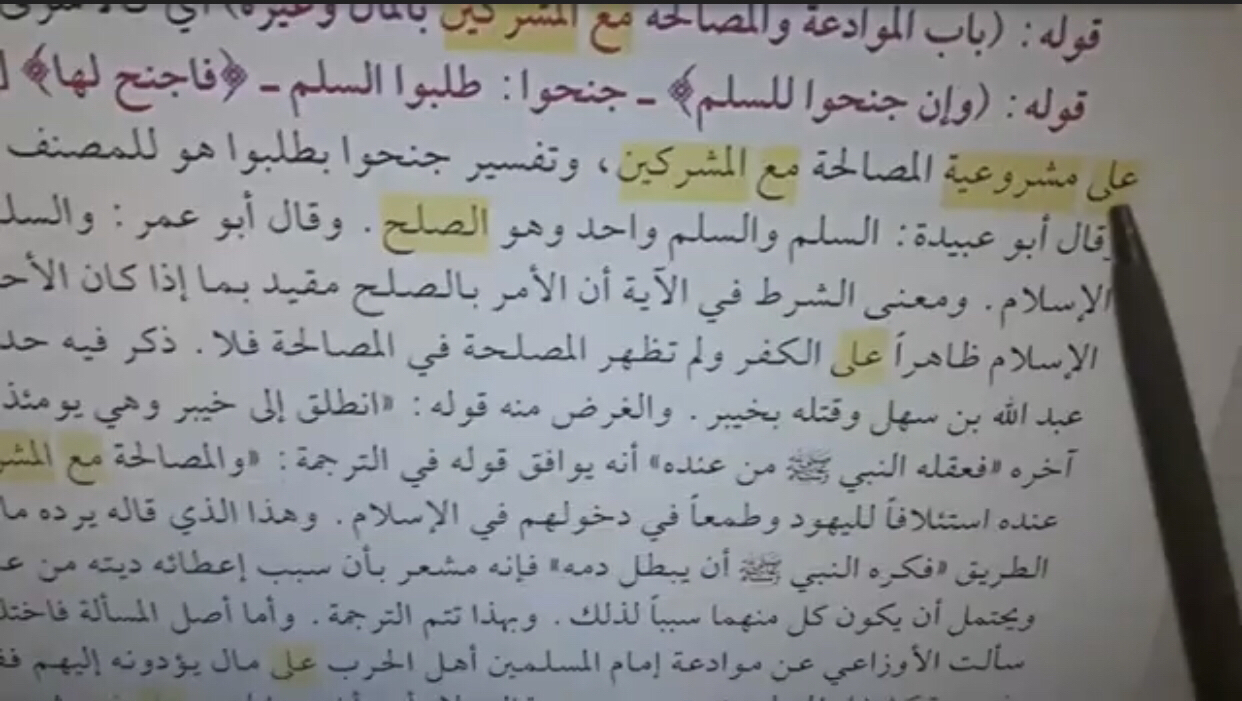 قوله: (باب الموادعة والمصالحة مع المشركين بالمال وغيره) أي
قوله: (وإن جنحوا للسلم﴾ ـ جنحوا: طلبوا السلم ـ ﴿فاجنح لها﴾
على مشروعية المصالحة مع المشركين، وتفسير جنحوا بطلبوا هو للمصنف
وقال أبو عبيدة: السلم والسلم واحد وهو الصلح. وقال أبو عمر: والسلـ
الإسلام. ومعنى الشرط في الآية أن الأمر بالصلح مقيد بما إذا كان الأحـ
الإسلام ظاهراً على الكفر ولم تظهر المصلحة في المصالحة فلا. ذكر فيه حد
عبد الله بن سهل وقتله بخيبر. والغرض منه قوله: «انطلق إلى خيبر وهي يومئذ
آخره «فعقله النبي ﷺ من عنده» أنه يوافق قوله في الترجمة: «والمصالحة مع المشر
عنده استئلافاً لليهود وطمعاً في دخولهم في الإسلام. وهذا الذي قاله يرده ما
الطريق «فكره النبي ﷺ أن يبطل دمه» فإنه مشعر بأن سبب إعطائه ديته من عـ
ويحتمل أن يكون كل منهما سبباً لذلك. وبهذا تتم الترجمة. وأما أصل المسألة فاختلـ
سألت الأوزاعي عن موادعة إمام المسلمين أهل الحرب على مال يؤدونه إليهم فقـ